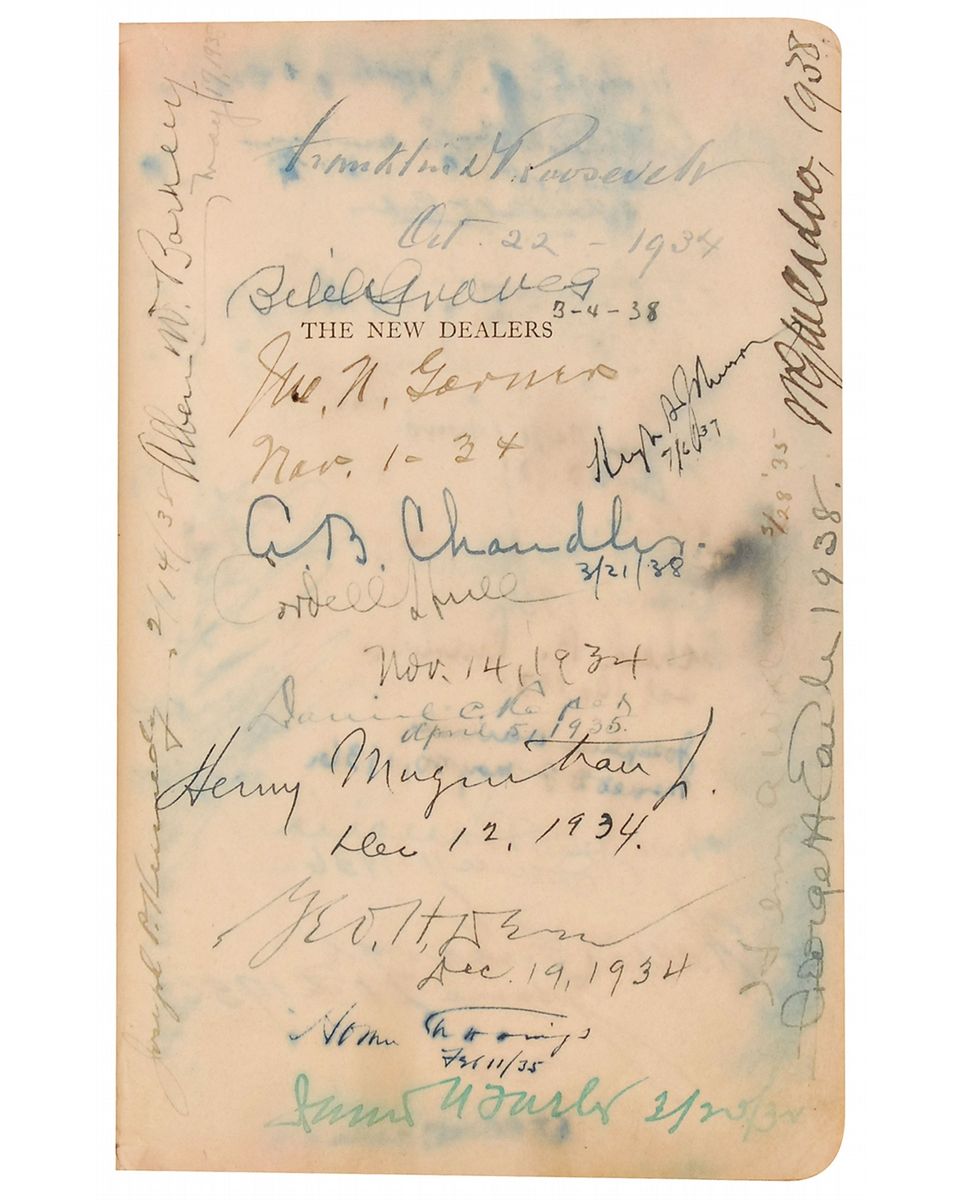 Franklin D Roosevelt
Oct. 22 - 1934
Bibb Graves
3-4-38
THE NEW DEALERS
Jno. N. Garner
Nov. 1 - 34
Hugh S Johnson
37
A. B. Chandler.
3/21/38
Cordell Hull
Nov. 14, 1934
Daniel C. Roper
April 5, 1935.
Henry Morgenthau Jr.
Dec 12, 1934.
Geo. H. Dern
Dec. 19, 1934
Homer Cummings
Feb 11/35
James A Farley
Joseph P. Kennedy. 2/14/38
Alben W. Barkley
May
W G McAdoo, 1938.
George H Earle 1938.
Henry A Wallace
3/28 '35